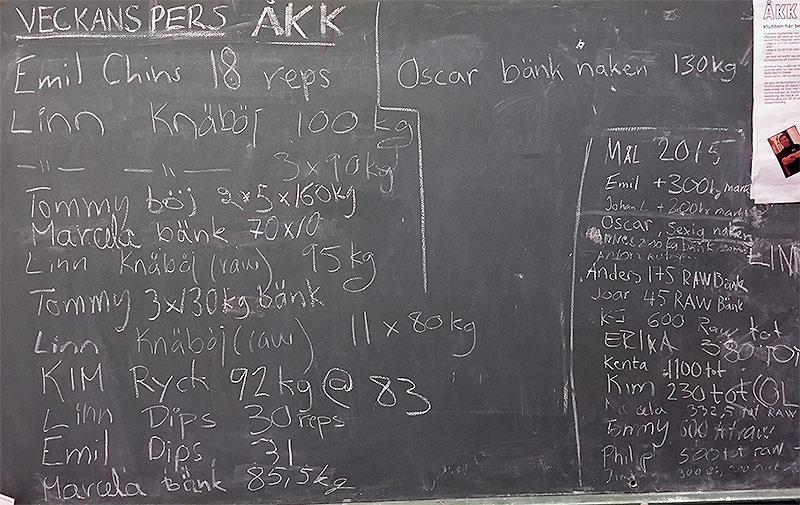 VECKANS PERS ÅKK
Emil Chins 18 reps
Linn Knäböj 100 kg
-"- -"- 3x90kg
Tommy böj 2x5x160kg
Marcela bänk 70x10
Linn Knäböj (raw) 95 kg
Tommy 3x130kg bänk
Linn Knäböj (raw) 11 x 80 kg
KIM Ryck 92kg @ 83
Linn Dips 30 reps
Emil Dips 31
Marcela bänk 85,5kg
Oscar bänk naken 130kg
MÅL 2015
Emil +300kg mark
Johan L. +200kg mark
Oscar, Sexig naken
Anders 175 RAW Bänk
Joar 45 RAW Bänk
KJ 600 Raw tot
ERIKA 380 TOT
Kenta 1100 tot
Kim 230 tot (OL
Marcela 332,5 tot RAW
Tommy 600 tot raw
Philip 500 tot raw
LIN
ÅKK
Klubben har be